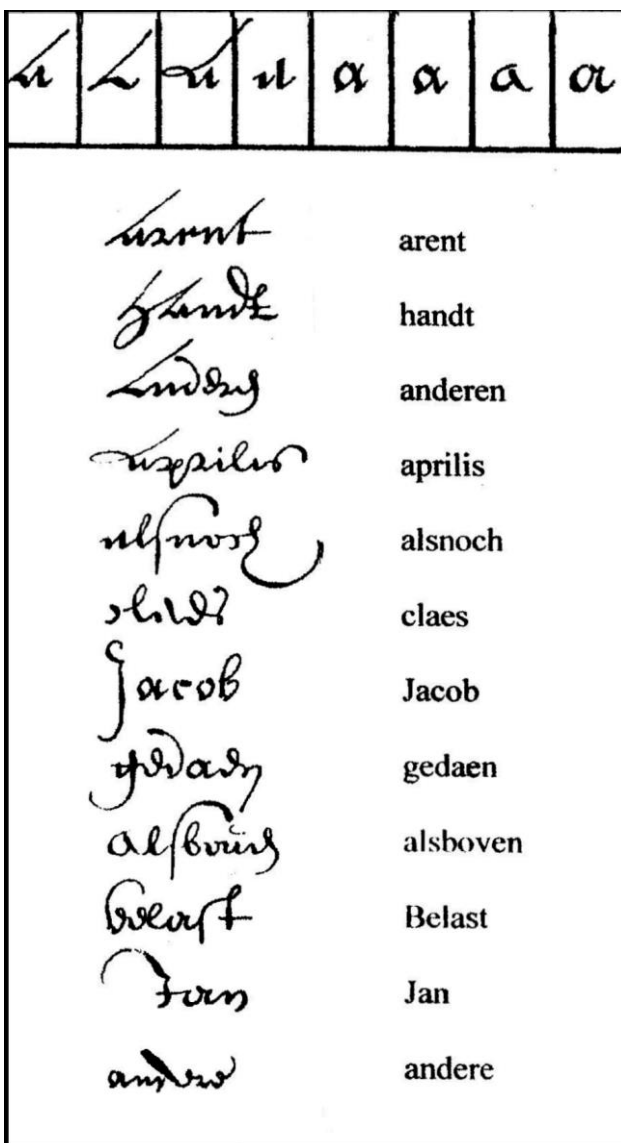 a a a a a a a a
arent arent
handt handt
anderen anderen
aprilis aprilis
alsnoch alsnoch
claes claes
Jacob Jacob
gedaen gedaen
alsboven alsboven
Belast Belast
Jan Jan
andere andere